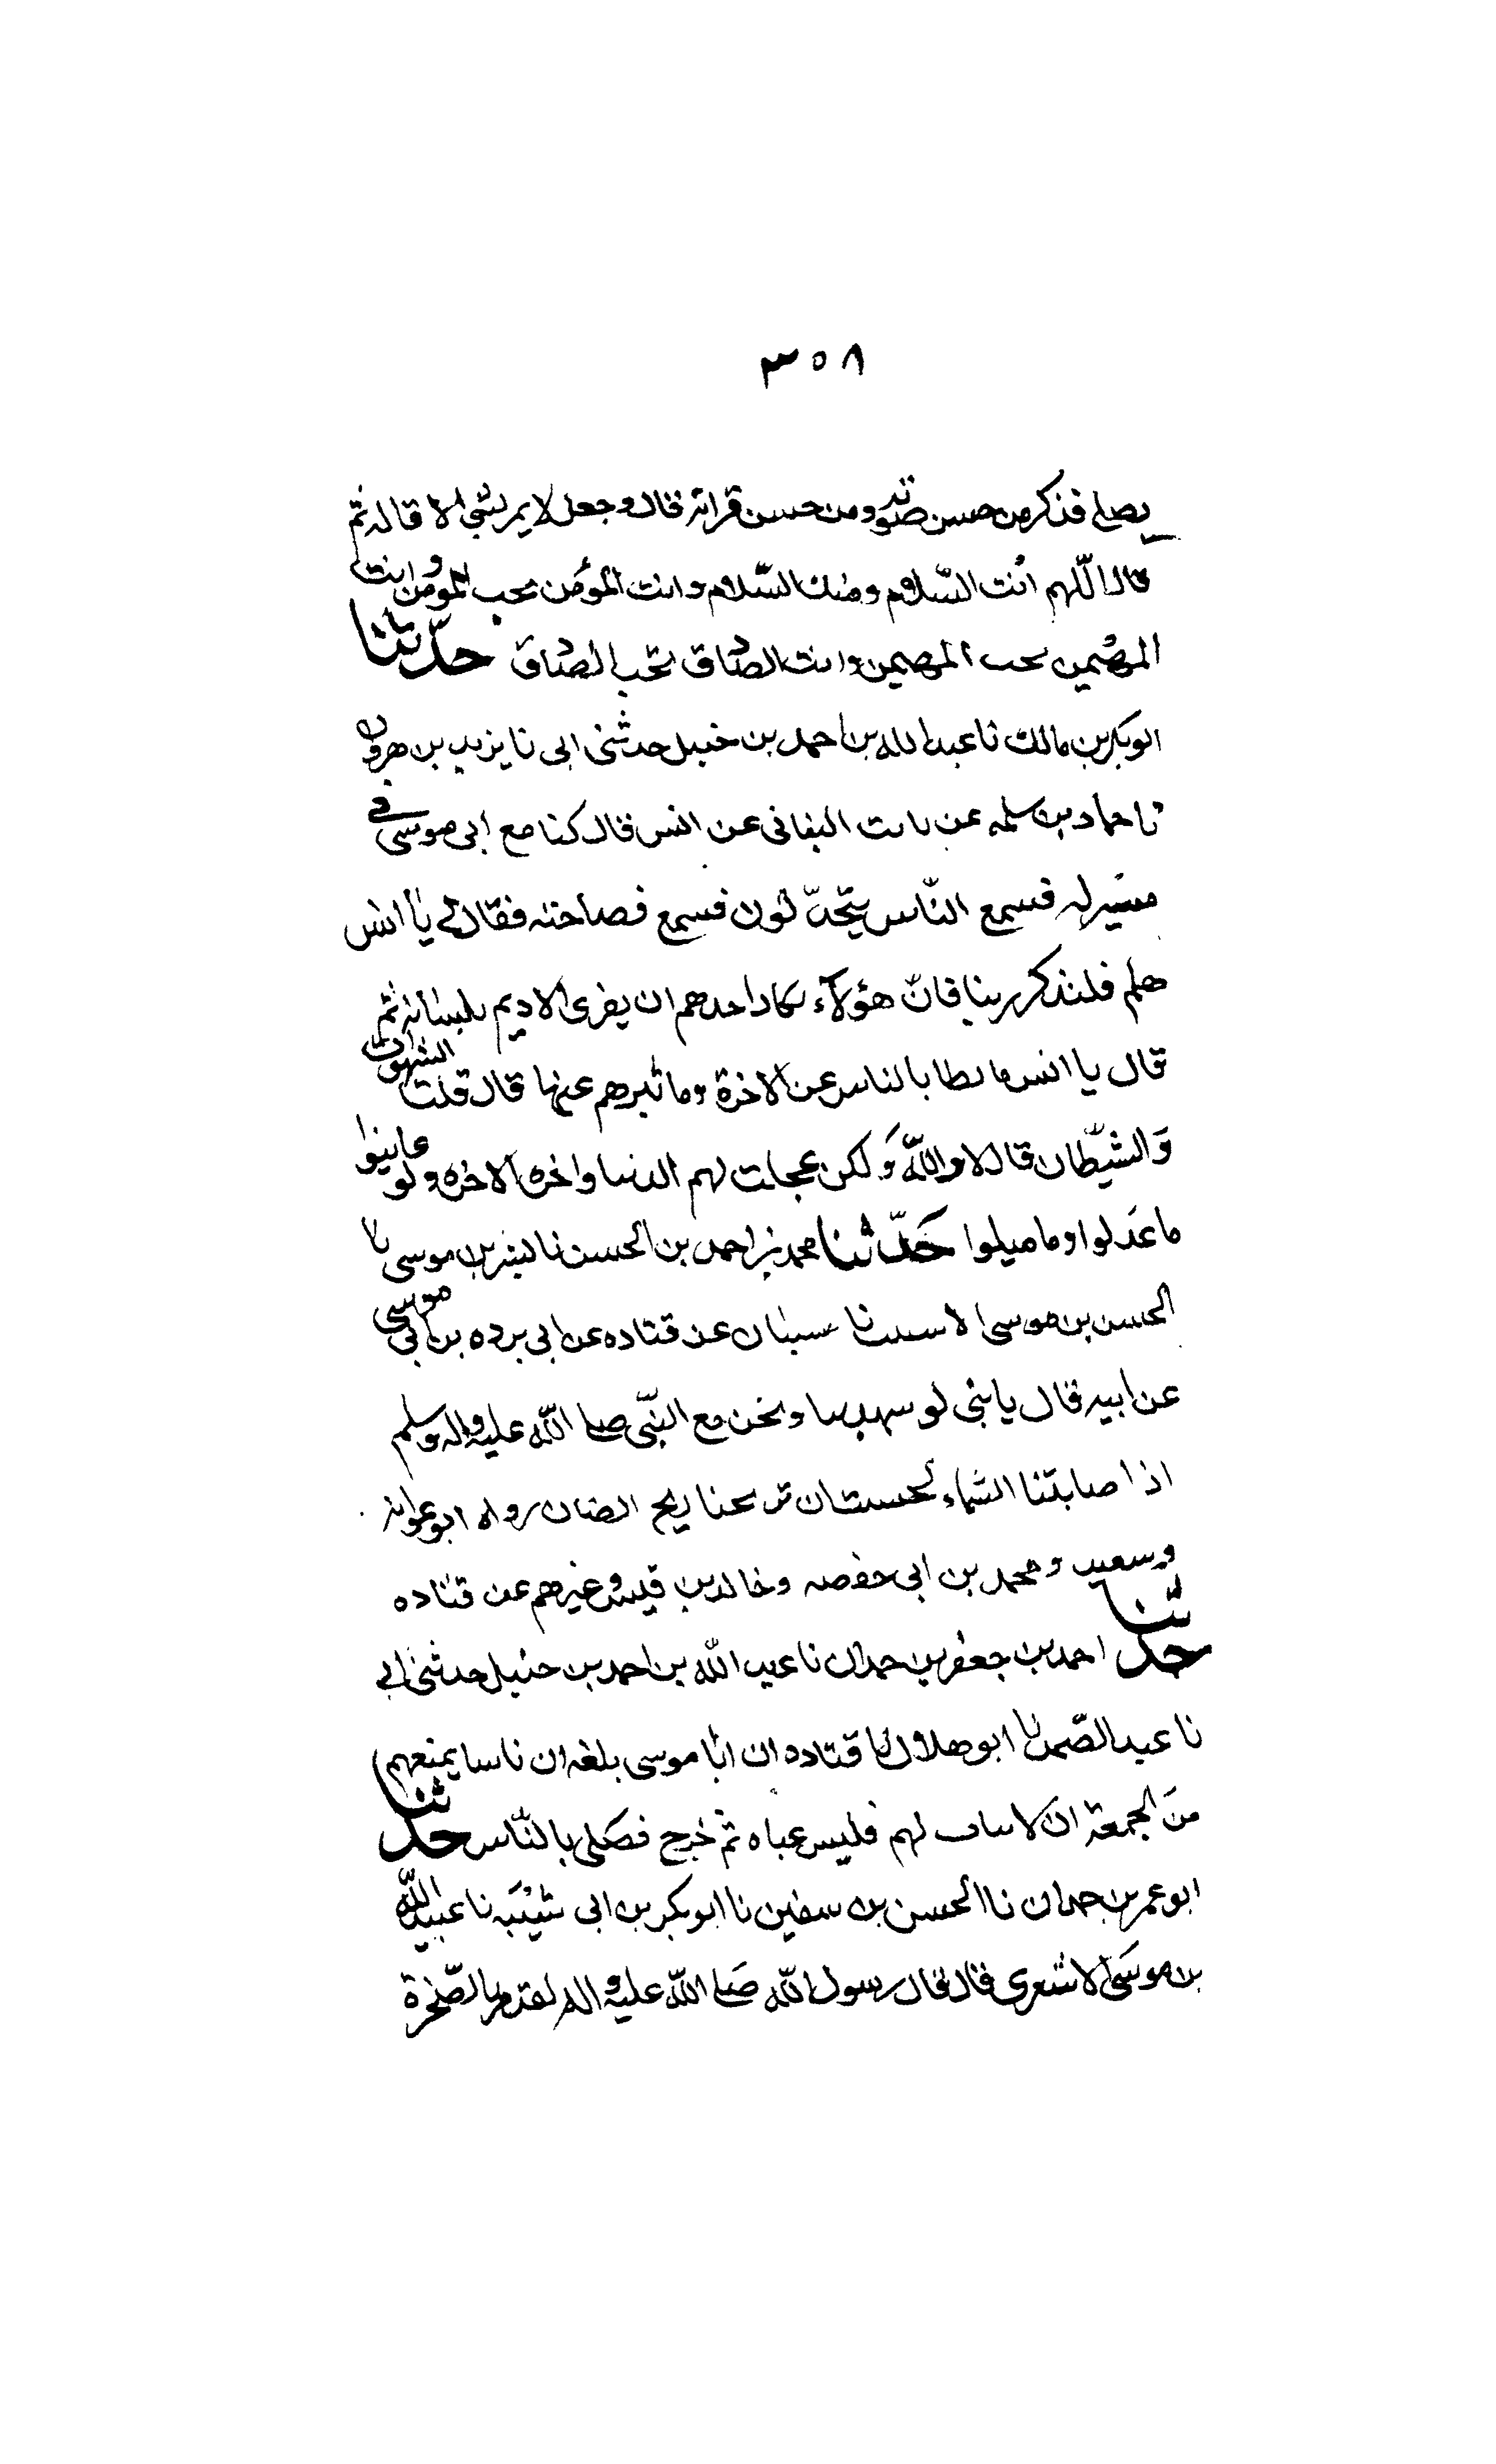 ٣٥٨
يصلى فذكر من حسن صوته ومن حسن قرائته قال وجعل لا يمر بشئ الا قاله ثم
قال اللّهم انت السّلام ومنك السّلام وانت المؤمن تحب المؤمن وانت
المهيمن تحب المهيمن وانت الصادق تحب الصادق حدّثنا
ابو بكر بن مالك نا عبد الله بن احمد بن حنبل حدثنى ابى نا يزيد بن هرون
نا حماد بن سلمه عن ثابت البنانى عن انس قال كنا مع ابى موسى فى
مسير له فسمع النّاس يتحدّثون فسمع فصاحته فقال لى يا انس
هلم فلنذكر ربنا فانّ هؤلاء يكاد احدهم ان يفرى الاديم بلسانه ثم
قال يا انس ما بطا بالناس عن الاخرة وما ثبرهم عنها قال قلت الشهوات
وَالشّيطان قال لا واللّه وَلكن عجلت لهم الدنيا واخره الاخره ولو عاينوا
ما عَدلوا وما ميلوا حَدّثنا محمد بن احمد بن الحسن نا بشر بن موسى نا
الحسن بن موسى الاسيب نا سيبان عن قتاده عن ابى برده بن ابى موسى
عن ابيه قال يا بنى لو شهدتنا ونحن مع النّبى صلى اللّه عليه واله وسلم
اذا صابتنا السّماء لحسبت ان ريحنا ريح الضان رواه ابو عوانه
وسعيد ومحمد بن ابى حفصه وخالد بن قيس وغيرهم عن قتاده
حدثنا احمد بن جعفر بن حمدان نا عبد اللّه بن احمد بن حنبل حدثنى ابى
نا عبد الصّمد نا ابو هلال نا قتاده ان ابا موسى بلغه ان ناسا يمنعهم
منَ الجمعة ان لا ثياب لهم فلبس عباه ثم خرج فصَلى بالنّاس حدثنا
ابو عمر بن حمدان نا الحسن بن سفين نا ابو بكر بن ابى شيْبَه نا عبيد اللّه
بن موسَى الاشعرى قال قال رسول اللّه صَلى اللّه عليه واله لقد مر بالصّخرة